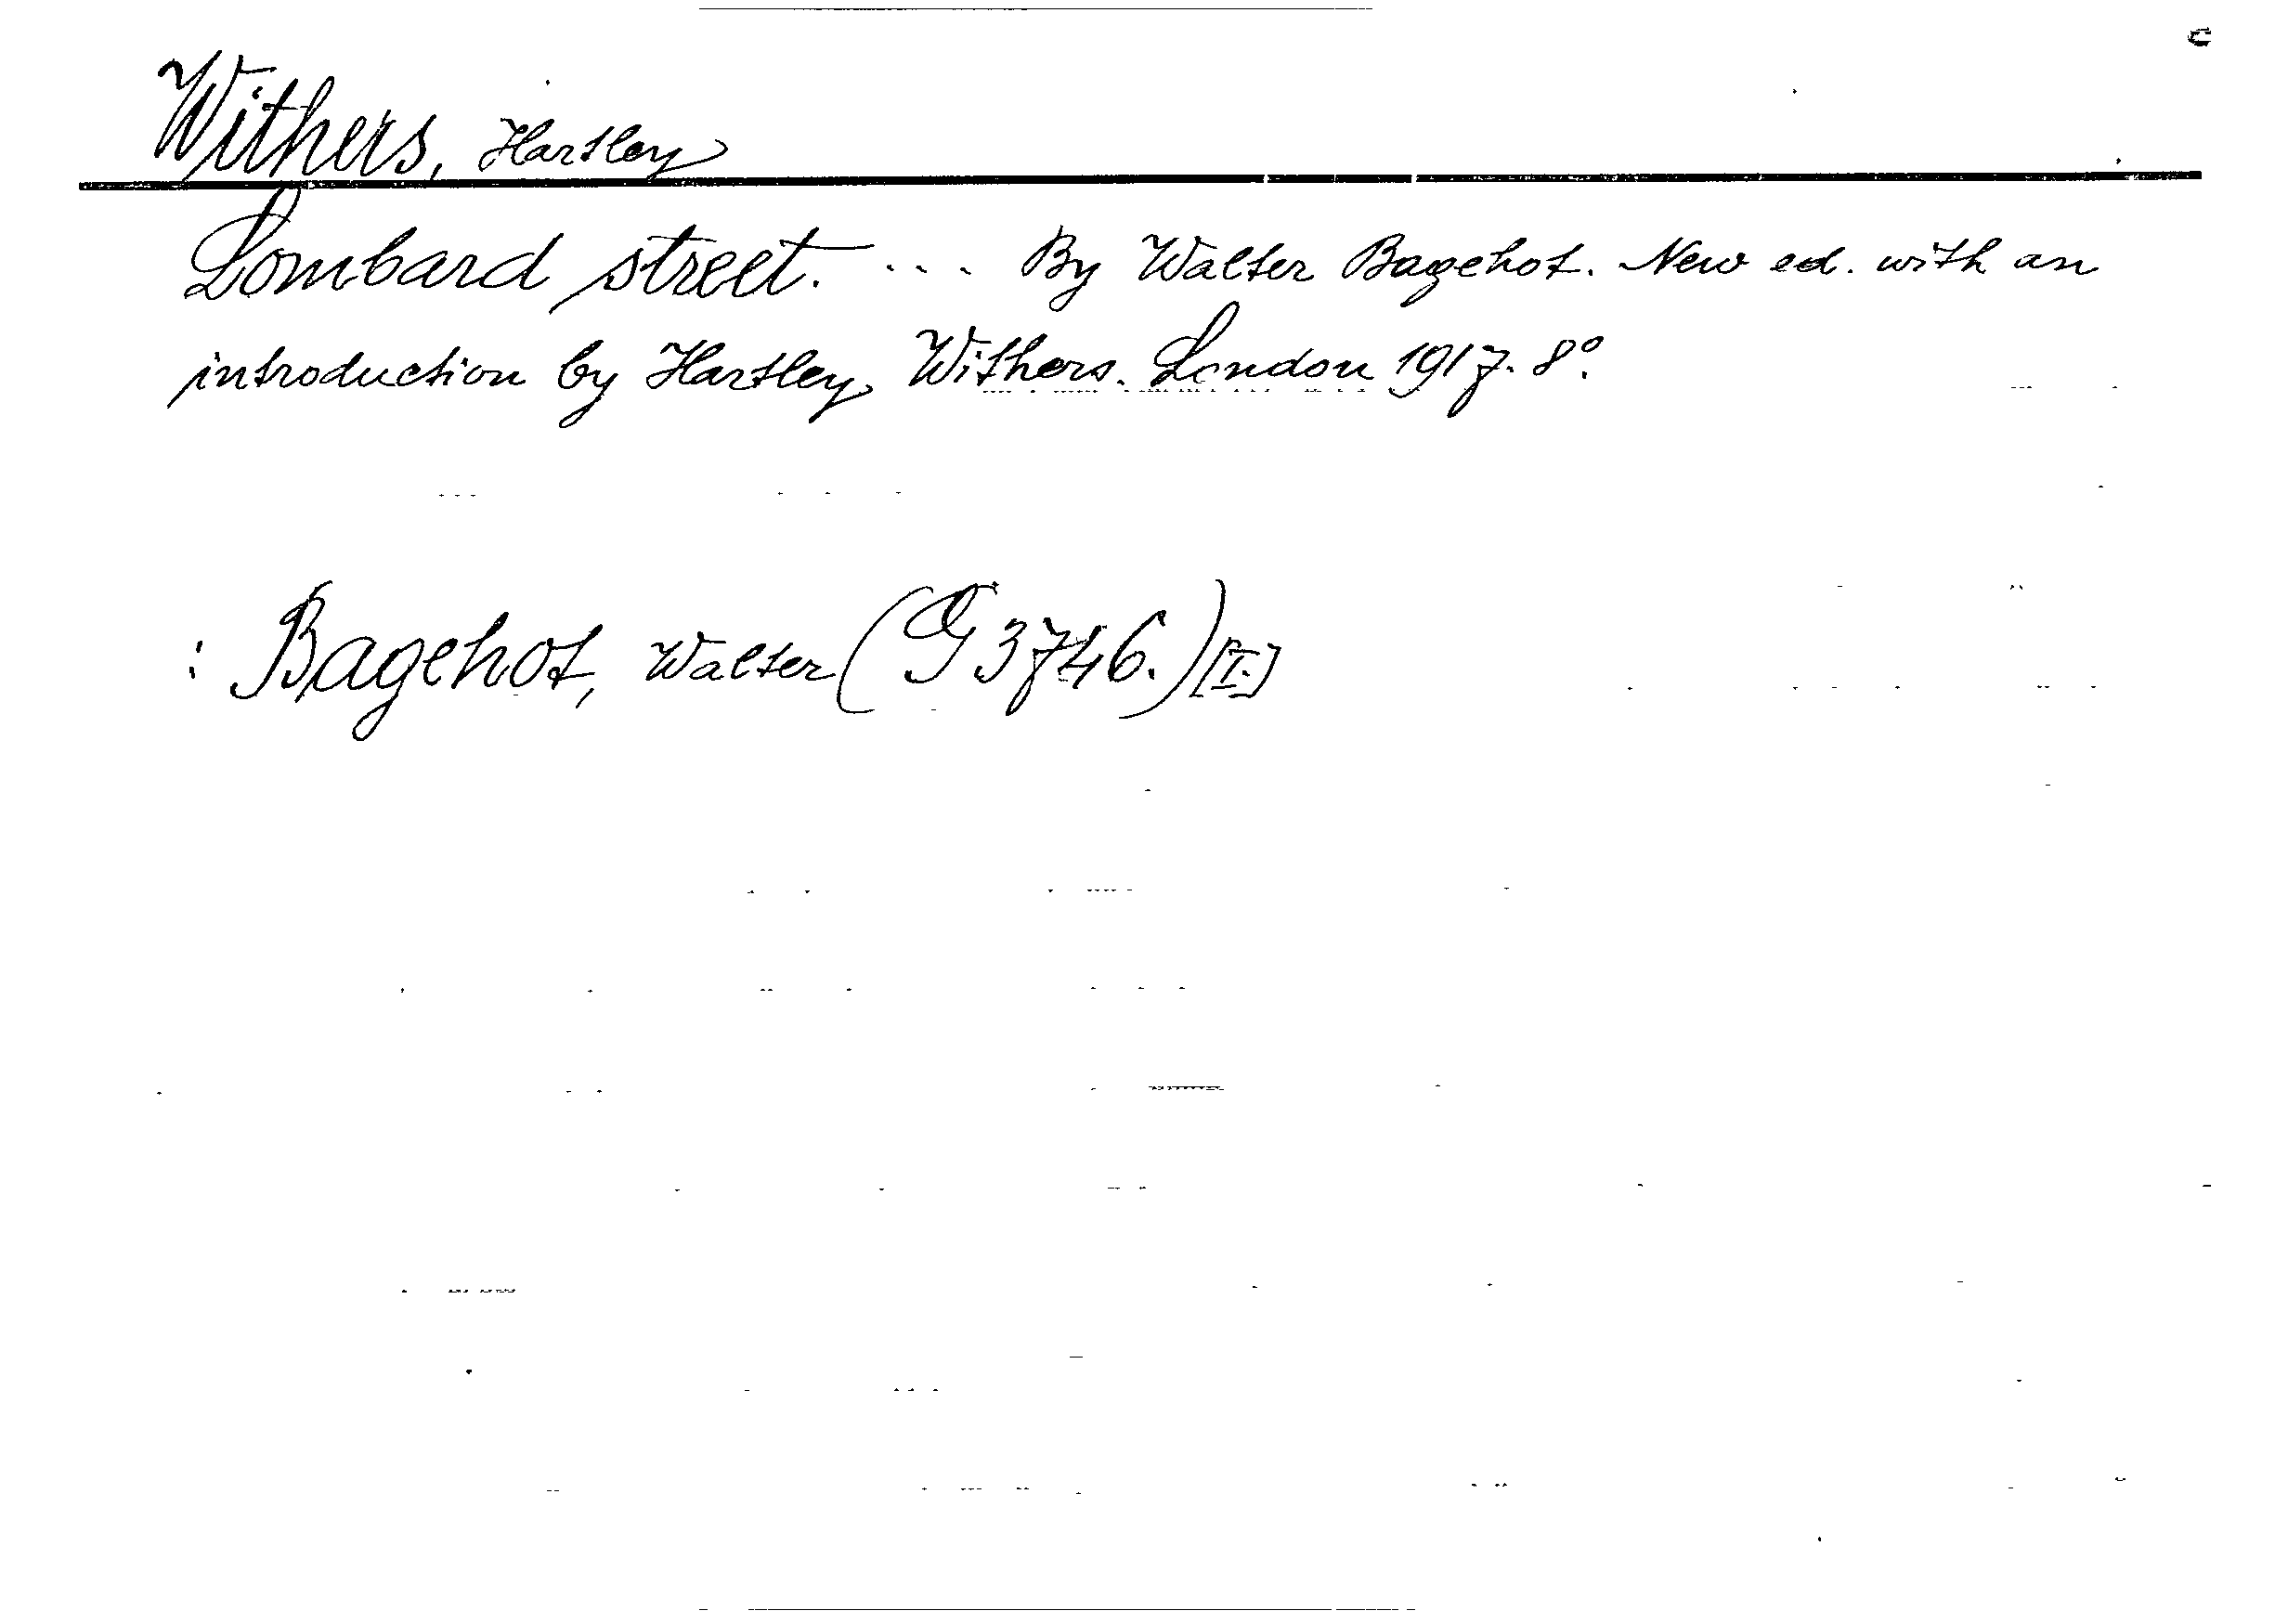 Withers, Hartley
Lombard street. ... By Walter Bagehot. New ed. with an
introduction by Hartley Withers. London 1917. 8°.
: Bagehot, Walter (G 3746.) [I.]